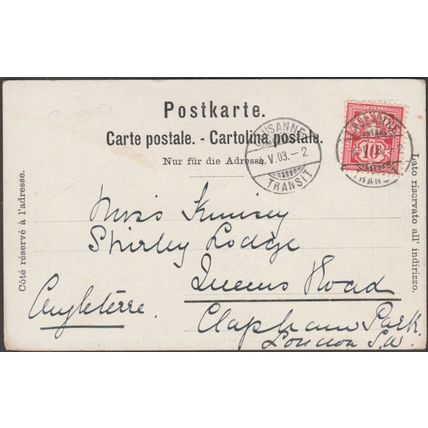 Postkarte.
Carte postale. - Cartolina postale.
Nur für die Adresse.
LAUSANNE
4.V.03.-2
TRANSIT
LAUSANNE
10
TRANSIT
Côté réservé à l'adresse.
Lato riservato all' indirizzo.
Miss
Shirley Lodge
Queens Road
Angleterre.
Clapham Park.
London S.W.